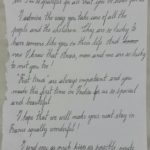 I'm so grateful for all that you've done for us
I admire the way you take care of all the
people and the children. They are so lucky to
have someone like you in their life. And
now I know that Shaan, mom and me are so lucky
to met you too!
First times are always important and you
made the first time in India for us so special
and beautiful.
I hope that we will make your next stay in
France equally wonderful!
I send you as much hugs as possible